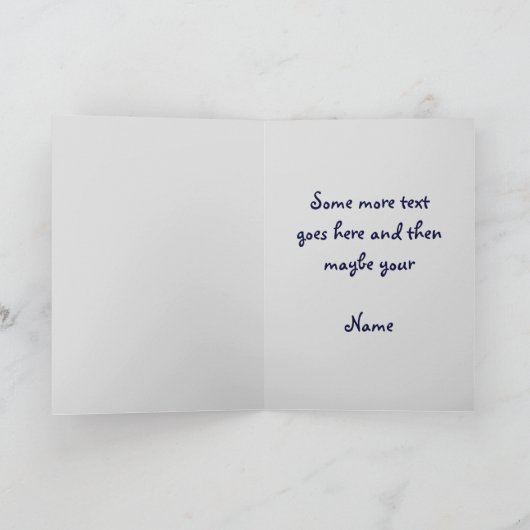 Some more text
goes here and then
maybe your
Name